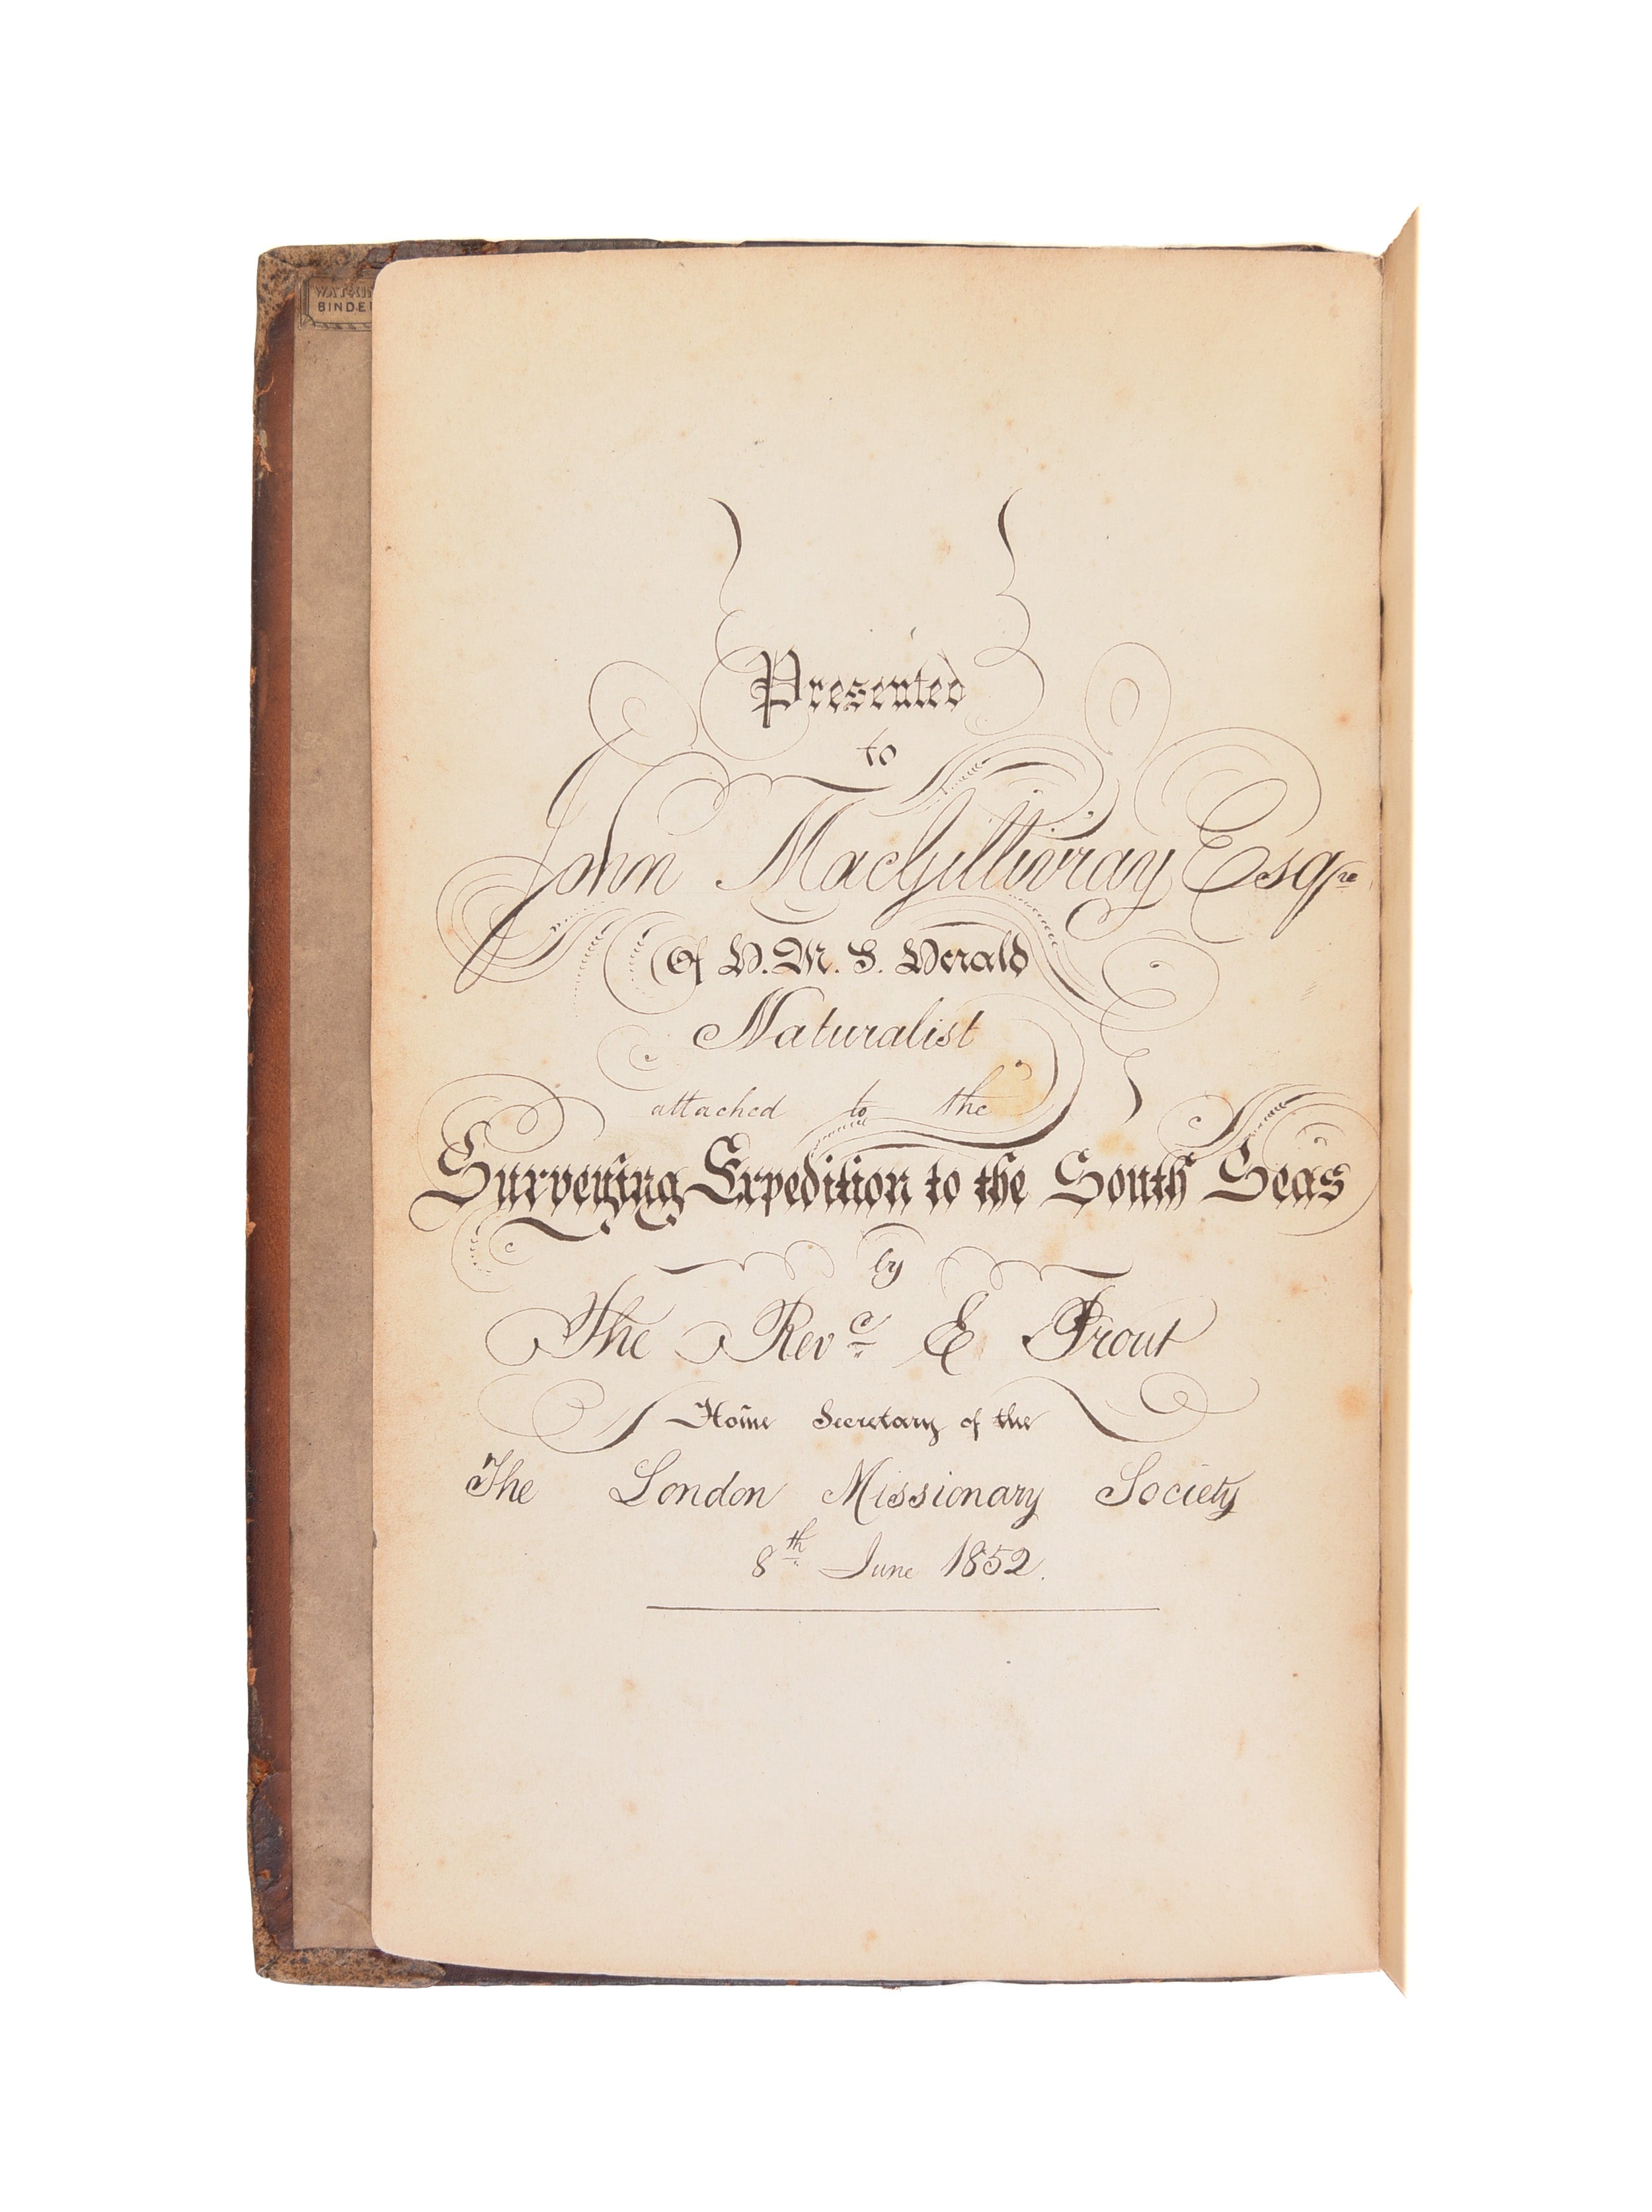 WATKIN
BINDE
Presented
to
John MacGillivray Esqre
Of H.M.S. Herald
Naturalist
attached to the
Surveying Expedition to the South Seas
by
The Revd E Prout
Home Secretary of the
The London Missionary Society
8th June 1852.